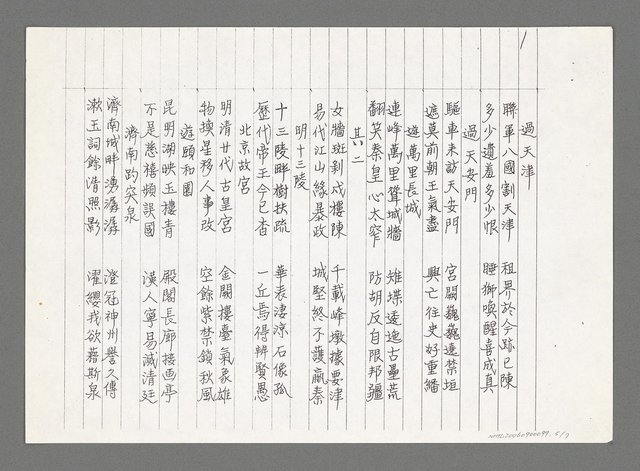 1
過天津
聯軍八國割天津　租界於今跡已陳
多少遺羞多少恨　睡獅喚醒喜成真
過天安門
驅車来訪天安門　宮闕巍巍遶禁垣
遮莫前朝王氣盡　興亡往史好重繙
遊萬里長城
連峰萬里聳城牆　雉堞逶迤古壘荒
翻笑秦皇心太窄　防胡反自限邦疆
其二
女牆斑剝戍樓陳　千載峰墩據要津
易代江山緣暴政　城堅終不護嬴秦
明十三陵
十三陵畔樹扶疏　華表淒涼石像孤
歷代帝王今已杳　一丘焉得辨賢愚
北京故宮
明清廿代古皇宮　金闕樓臺氣象雄
物換星移人事改　空餘紫禁鎖秋風
遊頤和園
昆明湖映玉樓青　殿閣長廊接画亭
不是慈禧頻誤國　漢人寧易滅清廷
濟南趵突泉
濟南城畔湧潺潺　澄冠神州譽久傳
漱玉詞餘清照影　濯纓我欲藉斯泉
NMTL20060900099. 5/7